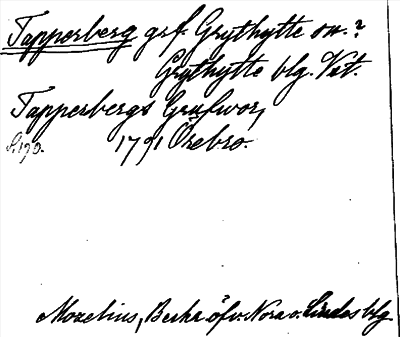 Tapperberg grf. Grythytte sn.?
Grythytte blg. Vst.
Tapperbergs Grufwor,
S. 190. 1791 Örebro.
Mozelius, Beskr. öfv. Nora o. Lindes blg.